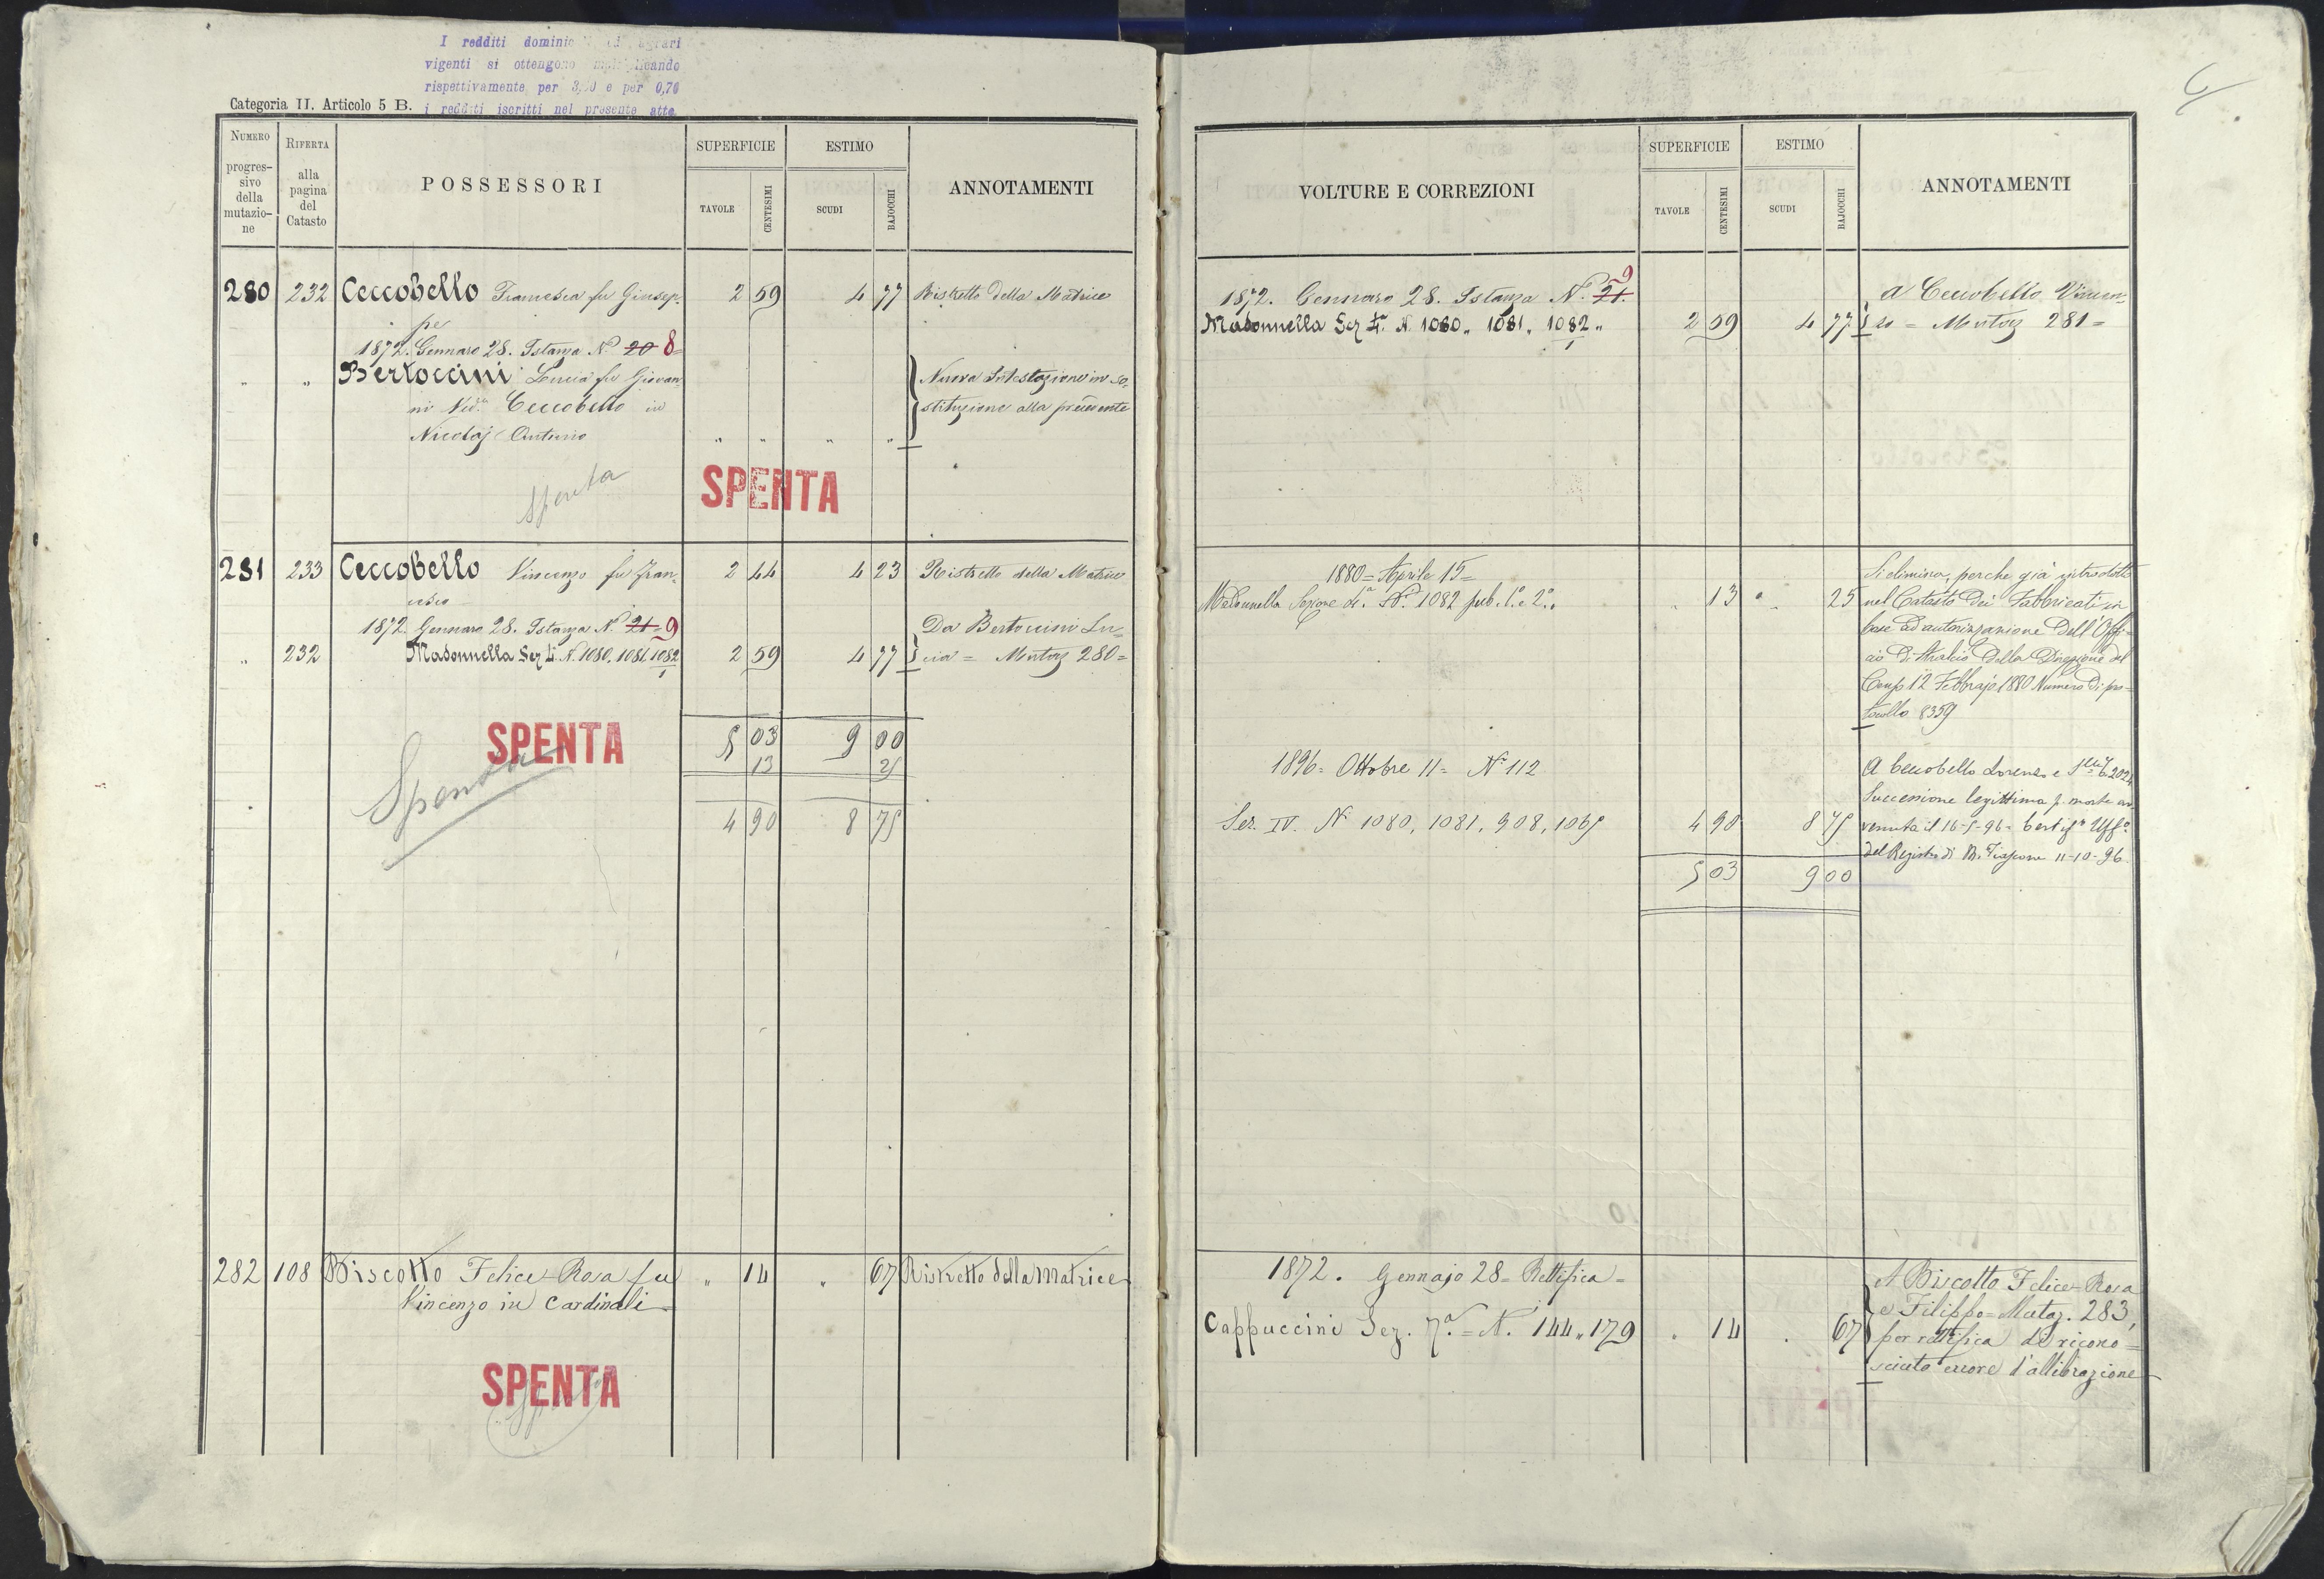 I redditi dominic ed agrari
vigenti si ottengono moltiplicando
rispettivamente per e per 0,70
i redditi iscritti nel presente atto
Categoria II. Articolo 5 B.
NUMERO progressivo della mutazione
RIFERTA alla pagina del Catasto
POSSESSORI
SUPERFICIE
TAVOLE
CENTESIMI
ESTIMO
SCUDI
BAJOCCHI
ANNOTAMENTI
280 232 Ceccobello Francesca fu Giusep- 2 59 4 77 Ristretto della Matrice
pe
1872. Gennaro 28. Istanza N. 20 8
" " Bertoccini Lucia fu Giovan- Nuova Intestazione in so-
ni Ved.a Ceccobello in stituzione alla precedente
Nicolaj Antonio " " " "
Spenta
SPENTA
281 233 Ceccobello Vincenzo fu Fran- 2 44 4 23 Ristretto della Matrice
cesco
1872. Gennaro 28. Istanza N. 21 = 9 Da Bertoccini Lu-
" 232 Madonnella Sez 4.a N. 1080, 1081, 1082/1 2 59 4 77 cia = Mutaz 280 =
SPENTA
Spenta
5 03 9 00
13 25
4 90 8 75
282 108 Biscotto Felice-Rosa fu " 14 " 67 Ristretto della Matrice
Vincenzo in Cardinali
SPENTA
VOLTURE E CORREZIONI
SUPERFICIE
TAVOLE
CENTESIMI
ESTIMO
SCUDI
BAJOCCHI
ANNOTAMENTI
1872. Gennaro 28. Istanza N. 21 9 a Ceccobello Vincen-
Madonnella Sez 4.a N. 1080 " 1081 " 1082/1 " 2 59 4 77 zo = Mutaz 281 =
1880 = Aprile 15 = Si elimina, perche già introdotto
Madonnella Sezione 4.a N.° 1082 sub. 1.° e 2.° " 13 " 25 nel Catasto dei Fabbricati in
base ad autorizzazione dell'Offi-
cio di Stralcio della Direzione del
Cens.° 12 Febbrajo 1880 Numero di pro-
tocollo 8359
1896 = Ottobre 11 = N° 112 A Ceccobello Lorenzo e
Successione legittima p. morte av-
Sez. IV. N° 1080, 1081, 908, 1065 4 90 8 75 venuta il 16-5-96 = Certif.to Uff.°
del Registro di M. Fiascone 11-10-96
5 03 9 00
1872. Gennajo 28 = Rettifica = A Biscotto Felice-Rosa
e Filippo = Mutaz. 283,
Cappuccini Sez. 7.a = N. 144 " 179 " 14 " 67 per rettifica di ricono-
sciuto errore d'allibrazione